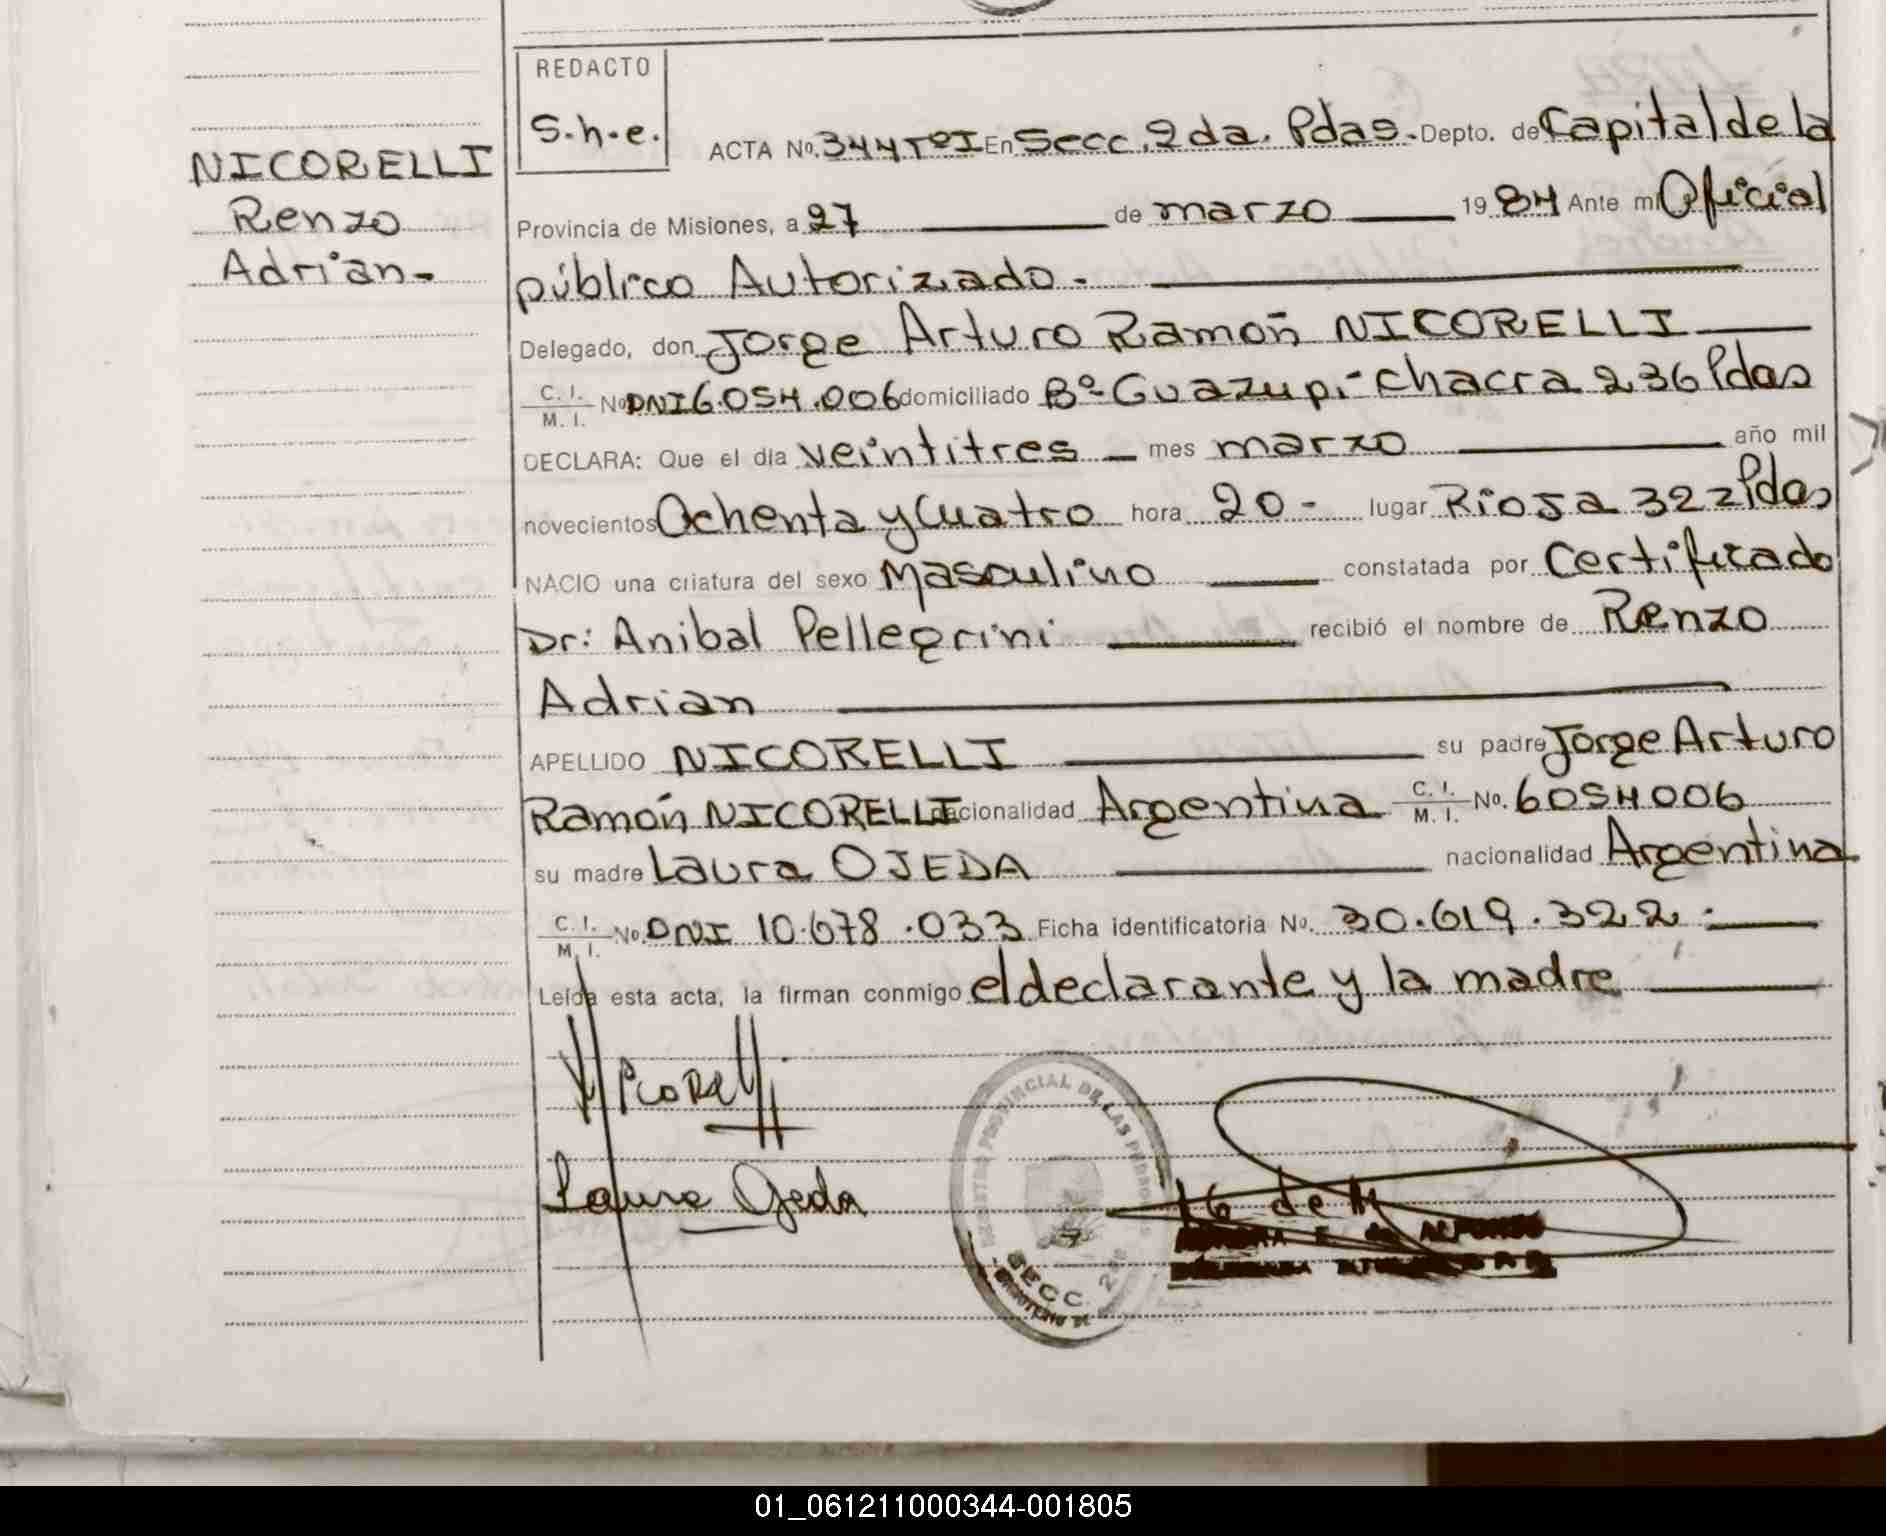 REDACTO
S.h.e.
NICORELLI
Renzo
Adrian.
ACTA No. 344 TºI En Secc. 2da. Pdas. Depto. de Capital de la
Provincia de Misiones, a 27 de marzo 1984 Ante mi Oficial
público Autorizado.
Delegado, don Jorge Arturo Ramón NICORELLI
C. I. / M. I. No. DNI 6.054.006 domiciliado Bº Guazupi - Chacra 236 Pdas
DECLARA: Que el día veintitres mes marzo año mil
novecientos Ochenta y Cuatro hora 20 - lugar Rioja 322 Pdas
NACIO una criatura del sexo Masculino constatada por Certificado
Dr: Anibal Pellegrini recibió el nombre de Renzo
Adrian
APELLIDO NICORELLI su padre Jorge Arturo
Ramón NICORELLI nacionalidad Argentina C. I. / M. I. No. 6054006
su madre Laura OJEDA nacionalidad Argentina
C. I. / M. I. No. DNI 10.678.033 Ficha identificatoria No. 30.619.322.
Leída esta acta, la firman conmigo el declarante y la madre
Nicorelli
Laura Ojeda
REGISTRO PROVINCIAL DE LAS PERSONAS
SECC. 2da
de ALFONSO
01_061211000344-001805